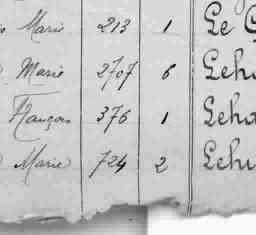 Marie 213 1 Le
Marie 2707 6 Leh
François 376 1 Leha
Marie 724 2 Lehu